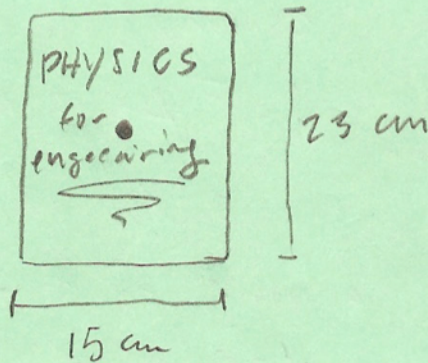 PHYSICS
for
engeeairing
23 cm
15 cm